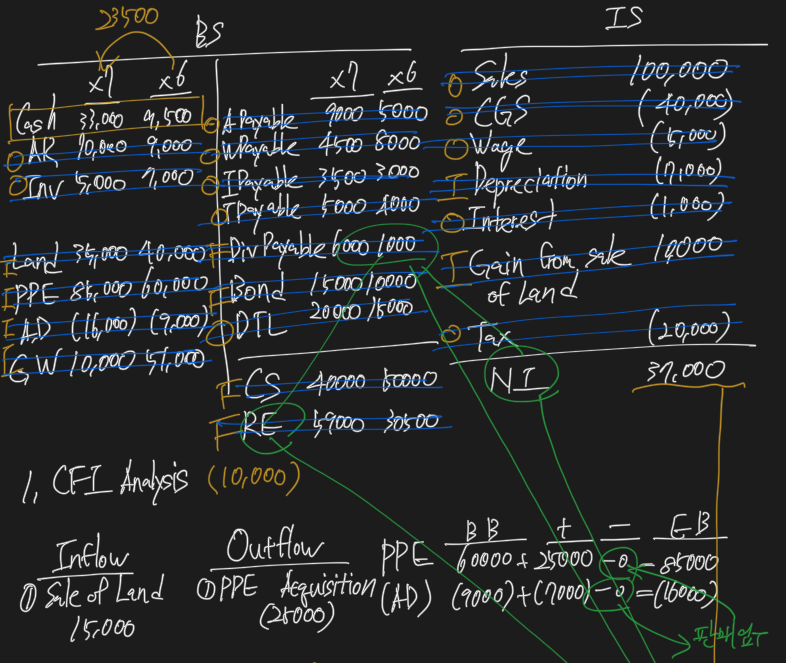 23500
BS
IS
x7 x6
Cash 33,000 9,500
O AR 10,000 9,000
O Inv 5,000 7,000
I Land 35,000 40,000
I PPE 85,000 60,000
I AD (16,000) (9,000)
I GW 10,000
x7 x6
O APayable 9000 5000
O WPayable 4500 8000
O IPayable 3500 3000
O TPayable 5000 4000
F Div Payable 6000 1000
F Bond 15000 10000
O DTL 20000 15000
F CS 40000 50000
F RE 59000 30500
O Sales 100,000
O CGS (40,000)
O Wage (5,000)
I Depreciation (7,000)
O Interest (1,000)
I Gain from sale 10,000
of Land
O Tax (20,000)
NI 37,000
1, CFI Analysis (10,000)
Inflow
① Sale of Land
15,000
Outflow
① PPE Acquisition
(25000)
BB + - EB
PPE 60000 + 25000 - 0 = 85000
(AD) (9000) + (7000) - 0 = (16000)
판매 없음